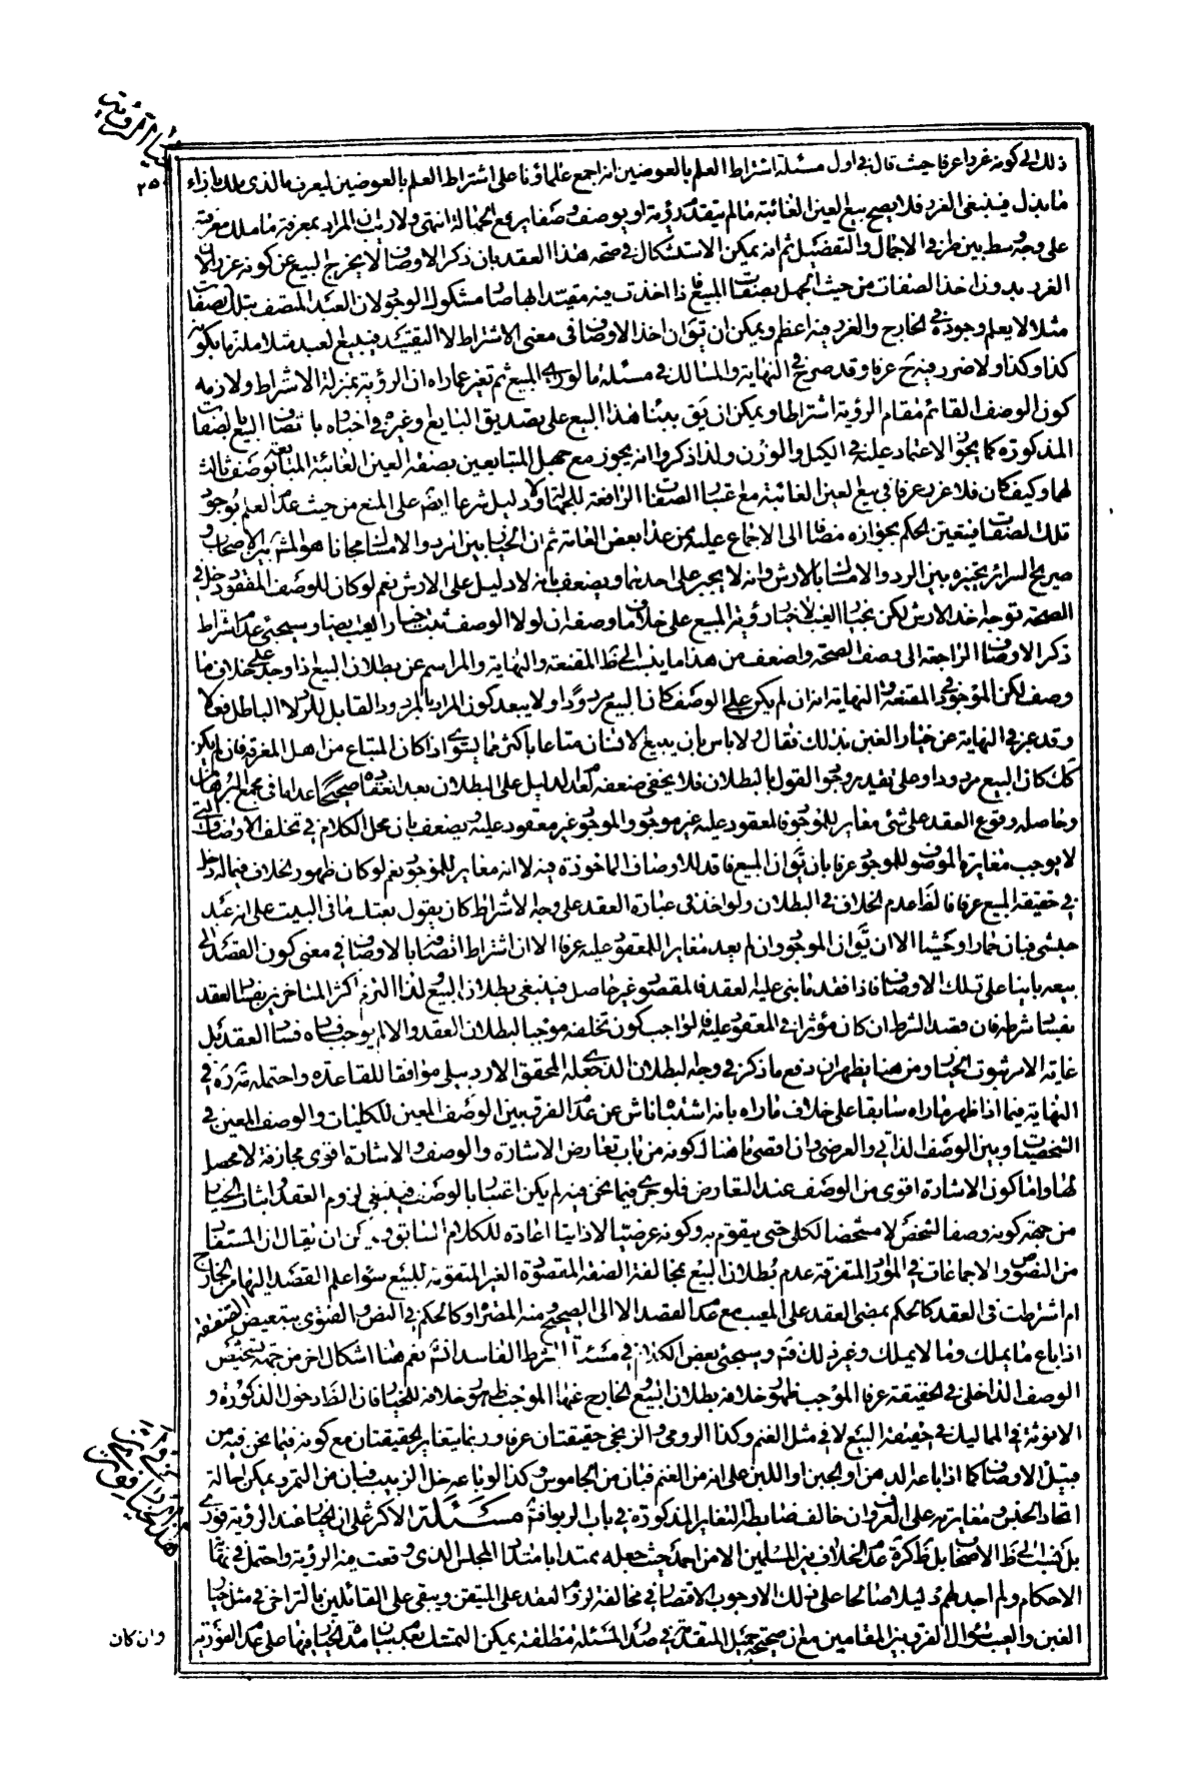 خيار الرؤية
٢٥٠
ذلك الى كونه غررا عرفا حيث قال في اول مسئلة اشتراط العلم بالعوضين انه اجمع علماؤنا على اشتراط العلم بالعوضين ليعرف ما الذي ملك بازاء
ما بذل فينتفي الغرر فلا يصح بيع العين الغائبة ما لم يتقدم رؤية او يوصف وصفا يرفع الجهالة انتهى ولا ريب ان المراد بمعرفة ما ملك معرفته
على وجه وسط بين طرفي الاجمال والتفصيل ثم انه يمكن الاستشكال في صحة هذا العقد بان ذكر الاوصاف لا يخرج البيع عن كونه غررا لان
الغرر بدون اخذ الصفات من حيث الجهل بصفات المبيع فاذا اخذت فيه مقيدا بها صار مشكوك الوجود لان العبد المتصف بتلك الصفات
مثلا لا يعلم وجوده في الخارج والغرر فيه اعظم ويمكن ان يقال ان اخذ الاوصاف في معنى الاشتراط لا التقييد فيبيع العبد مثلا ملتزما بكونه
كذا وكذا ولا غرر فيه ح عرفا وقد صرح في النهاية والمسالك في مسئلة ما لو راى المبيع ثم تغير عما راه ان الرؤية بمنزلة الاشتراط ولازمه
كون الوصف القائم مقام الرؤية اشتراطا ويمكن ان يق ببناء هذا البيع على تصديق البايع او غيره في اخباره باتصاف المبيع بالصفات
المذكورة كما يجوز الاعتماد عليه في الكيل والوزن ولذا ذكروا انه يجوز مع جهل المتبايعين بصفة العين الغائبة المبايعة بوصف ثالث
لهما وكيف كان فلا غرر عرفا في بيع العين الغائبة مع اعتبار الصفات الرافعة للجهالة ولا دليل شرعا ايضا على المنع من حيث عدم العلم بوجود
تلك الصفات فيتعين الحكم بجوازه مضافا الى الاجماع عليه ممن عدا بعض العامة ثم ان الخيار بين الرد والامساك مجانا هو المشهور بين الاصحاب و
صريح السرائر تخييره بين الرد والامساك بالارش وانه لا يجبر على احدهما ويضعف بانه لا دليل على الارش نعم لو كان للوصف المفقود دخل في
الصحة توجه اخذ الارش لكن بخيار العيب لا خيار رؤية المبيع على خلاف ما وصفه اذ لولا الوصف ثبت خيار العيب ايضا وسيجئ عدم اشتراط
ذكر الاوصاف الراجعة الى وصف الصحة واضعف من هذا ما ينسب الى ظ المقنعة والنهاية والمراسم من بطلان البيع اذا وجد على خلاف ما
وصف لكن الموجود في المقنعة والنهاية انه ان لم يكن على الوصف كان البيع مردودا ولا يبعد كون المراد بالمردود القابل للرد لا الباطل فعلا
وقد عبر في النهاية عن خيار الغبن بذلك فقال ولا باس بان يبيع الانسان متاعا باكثر مما يسوى اذا كان المبتاع من اهل المعرفة فان لم يكن
كك كان البيع مردودا وعلى تقدير وجود القول بالبطلان فلا يخفى ضعفه لعدم الدليل على البطلان بعد انعقاده صحيحا عدا ما في مجمع البرهان
وحاصله وقوع العقد على شئ مغاير للموجود فالمعقود عليه غير موجود والموجود غير معقود عليه ويضعف بان محل الكلام في تخلف الاوصاف التي
لا يوجب مغايرة الموصوف للموجود عرفا بان يقال ان المبيع فاقد للاوصاف الماخوذة فيه لا انه مغاير للموجود نعم لو كان ظهور الخلاف فيما له دخل
في حقيقة المبيع عرفا فالظ عدم الخلاف في البطلان ولو اخذ في عبارة العقد على وجه الاشتراط كان يقول بعتك ما في البيت على انه عبد
حبشي فبان حمارا وحشيا الا ان يقال ان الموجود وان لم يعد مغايرا للمعقود عليه عرفا الا ان اشتراط اتصافه بالاوصاف في معنى كون القصد الى
بيعه بانيا على تلك الاوصاف فاذا فقد ما بنى عليه العقد فالمقصود غير حاصل فينبغي بطلان البيع لذا التزم اكثر المتاخرين بفساد العقد
بفساد شرطه فان قصد الشرط ان كان مؤثرا في المعقود عليه فالواجب كون تخلفه موجبا لبطلان العقد والا لم يوجب فساده فساد العقد بل
غاية الامر ثبوت الخيار ومن هنا يظهر ان دفع ما ذكر في وجه البطلان الذي جعله المحقق الاردبيلي موافقا للقاعدة واحتمله قدره في
النهاية فيما اذا ظهر ما راه سابقا على خلاف ما راه بانه اشتباه ناش عن عدم الفرق بين الوصف المعين للكليات والوصف المعين في
الشخصيات وبين الوصف الذاتي والعرضي وان اقصى ما هناك كونه من باب تعارض الاشارة والوصف والاشارة اقوى مجازفة لا محصل
لها واما كون الاشارة اقوى من الوصف عند التعارض فلو جرى فيما نحن فيه لم يكن اعتبارا بالوصف فينبغي لزوم العقد واثبات الخيار
من جهة كونه وصفا لشخص لا مشخصا لكلي حتى يتقوم به وكونه عرضيا لا ذاتيا اعادة للكلام السابق ويمكن ان يقال ان المستفاد
من النصوص والاجماعات في الموارد المتفرقة عدم بطلان البيع بمخالفة الصفة المقصودة الغير المقومة للبيع سواء علم القصد اليها من الخارج
ام اشترطت في العقد كالحكم بمضي العقد على المعيب مع عدم القصد الا الى الصحيح ومنه المصراة وكالحكم في النص والفتوى بتبعض الصفقة
اذا باع ما يملك وما لا يملك وغير ذلك فتم وسيجئ بعض الكلام في مسئلة الشرط الفاسد انشاء الله نعم هنا اشكال اخر من جهة تشخيص
الوصف الداخل في الحقيقة عرفا الموجب ظهور خلافه بطلان البيع والخارج عنها الموجب ظهور خلافه للخيار فان الظ دخول الذكورة و
الانوثة في المماليك في حقيقة المبيع لا في مثل الغنم وكذا الرومي والزنجي حقيقتان عرفا وربما يتغاير الحقيقتان مع كونه فيما نحن فيه من
قبيل الاوصاف كما اذا باعه الدهن او الجبن او اللبن على انه من الغنم فبان من الجاموس وكذا لو باعه خل الزبيب فبان من التمر ويمكن احالة
اتحاد الجنس ومغايرته على العرف وان خالف ضابطة التغاير المذكورة في باب الربوا فتم مسئلة الاكثر على ان الخيار عند الرؤية فوري
بل نسب الى ظ الاصحاب بل ظ كرة عدم الخلاف بين المسلمين الا من احمد حيث جعله ممتدا بامتداد المجلس الذي وقعت فيه الرؤية واحتمل في نهاية
الاحكام ولم اجد لهم دليلا صالحا على ذلك الا وجوب الاقتصار في مخالفة لزوم العقد على المتيقن ويبقى على القائلين بالتراخي في مثل خيار
الغبن والعيب سؤال الفرق بين المقامين مع ان صحيحة جميل المتقدمة في صدر المسئلة مطلقة يمكن التمسك بعدم بيان مدة الخيار فيها على عدم الفورية
وان كان